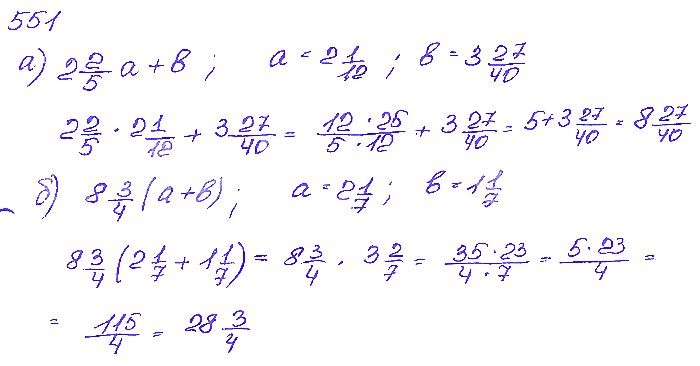 551
а) 2 2/5 a + b ; a = 2 1/12 ; b = 3 27/40
2 2/5 · 2 1/12 + 3 27/40 = 12 · 25 / 5 · 12 + 3 27/40 = 5 + 3 27/40 = 8 27/40
б) 8 3/4 (a + b) ; a = 2 1/7 ; b = 1 1/7
8 3/4 (2 1/7 + 1 1/7) = 8 3/4 · 3 2/7 = 35 · 23 / 4 · 7 = 5 · 23 / 4 =
= 115/4 = 28 3/4